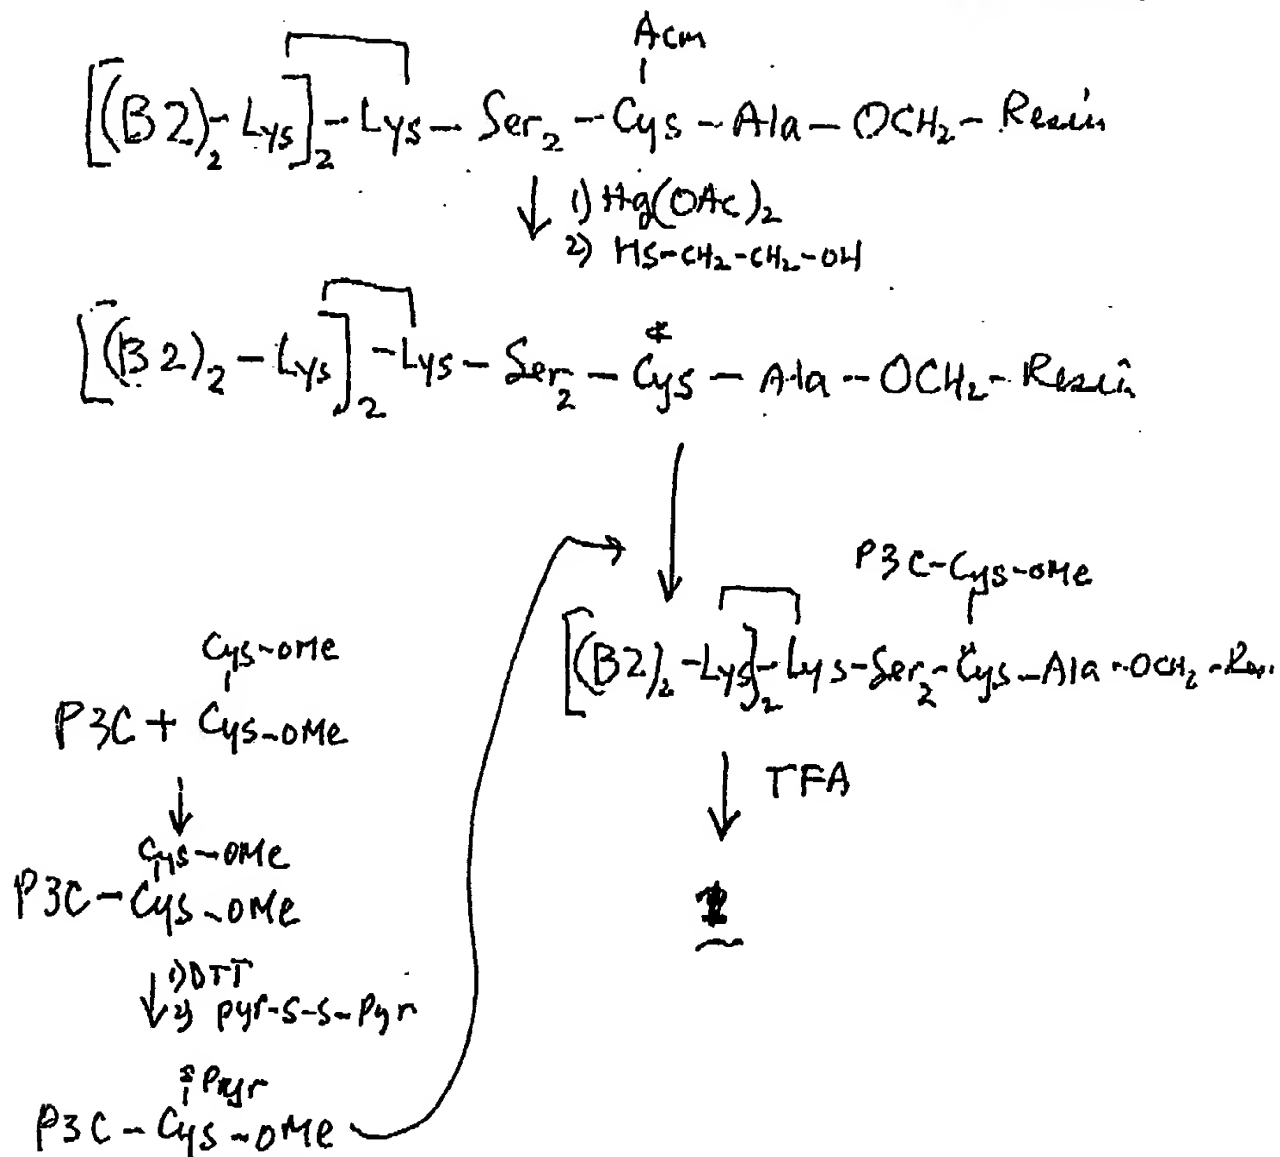 Acm
[(B2)2-Lys]2-Lys-Ser2-Cys-Ala-OCH2-Resin
1) Hg(OAc)2
2) HS-CH2-CH2-OH
*
[(B2)2-Lys]2-Lys-Ser2-Cys-Ala-OCH2-Resin
P3C-Cys-OMe
[(B2)2-Lys]2-Lys-Ser2-Cys-Ala-OCH2-Res
TFA
Cys-OMe
P3C + Cys-OMe
Cys-OMe
P3C-Cys-OMe
1) DTT
2) Pyr-S-S-Pyr
P3C-Cys-OMe